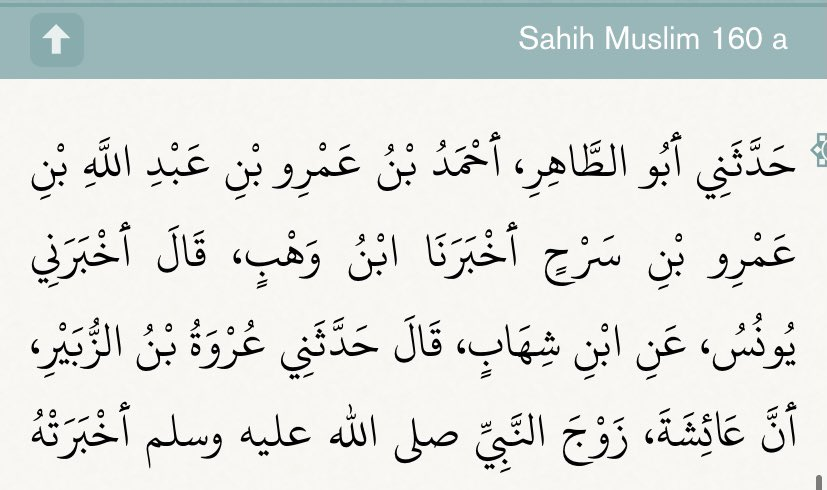 Sahih Muslim 160 a
حَدَّثَنِي أَبُو الطَّاهِرِ، أَحْمَدُ بْنُ عَمْرِو بْنِ عَبْدِ اللَّهِ بْنِ
عَمْرِو بْنِ سَرْحٍ أَخْبَرَنَا ابْنُ وَهْبٍ، قَالَ أَخْبَرَنِي
يُونُسُ، عَنِ ابْنِ شِهَابٍ، قَالَ حَدَّثَنِي عُرْوَةُ بْنُ الزُّبَيْرِ،
أَنَّ عَائِشَةَ، زَوْجَ النَّبِيِّ صلى الله عليه وسلم أَخْبَرَتْهُ